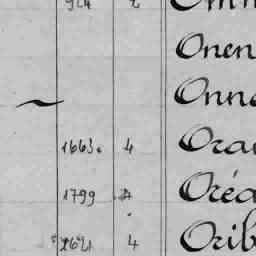 924 2 Omm
Onen
Onna
1663. 4 Ora
1799 4 Oréa
1621 4 Orib